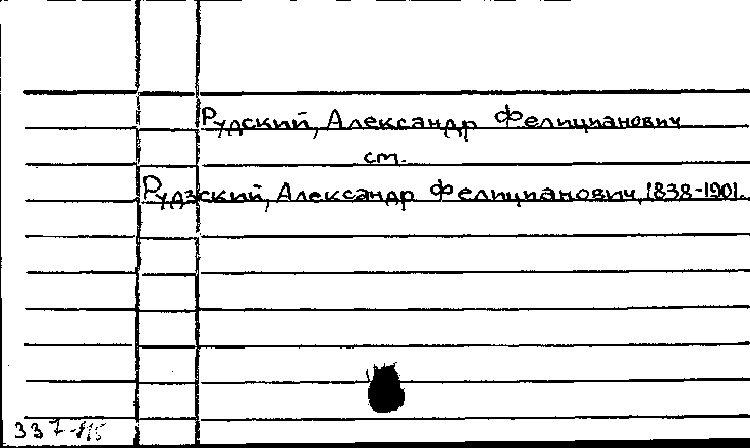 Рудский, Александр Фелицианович
см.
Рудзский, Александр Фелицианович, 1838-1901.
337